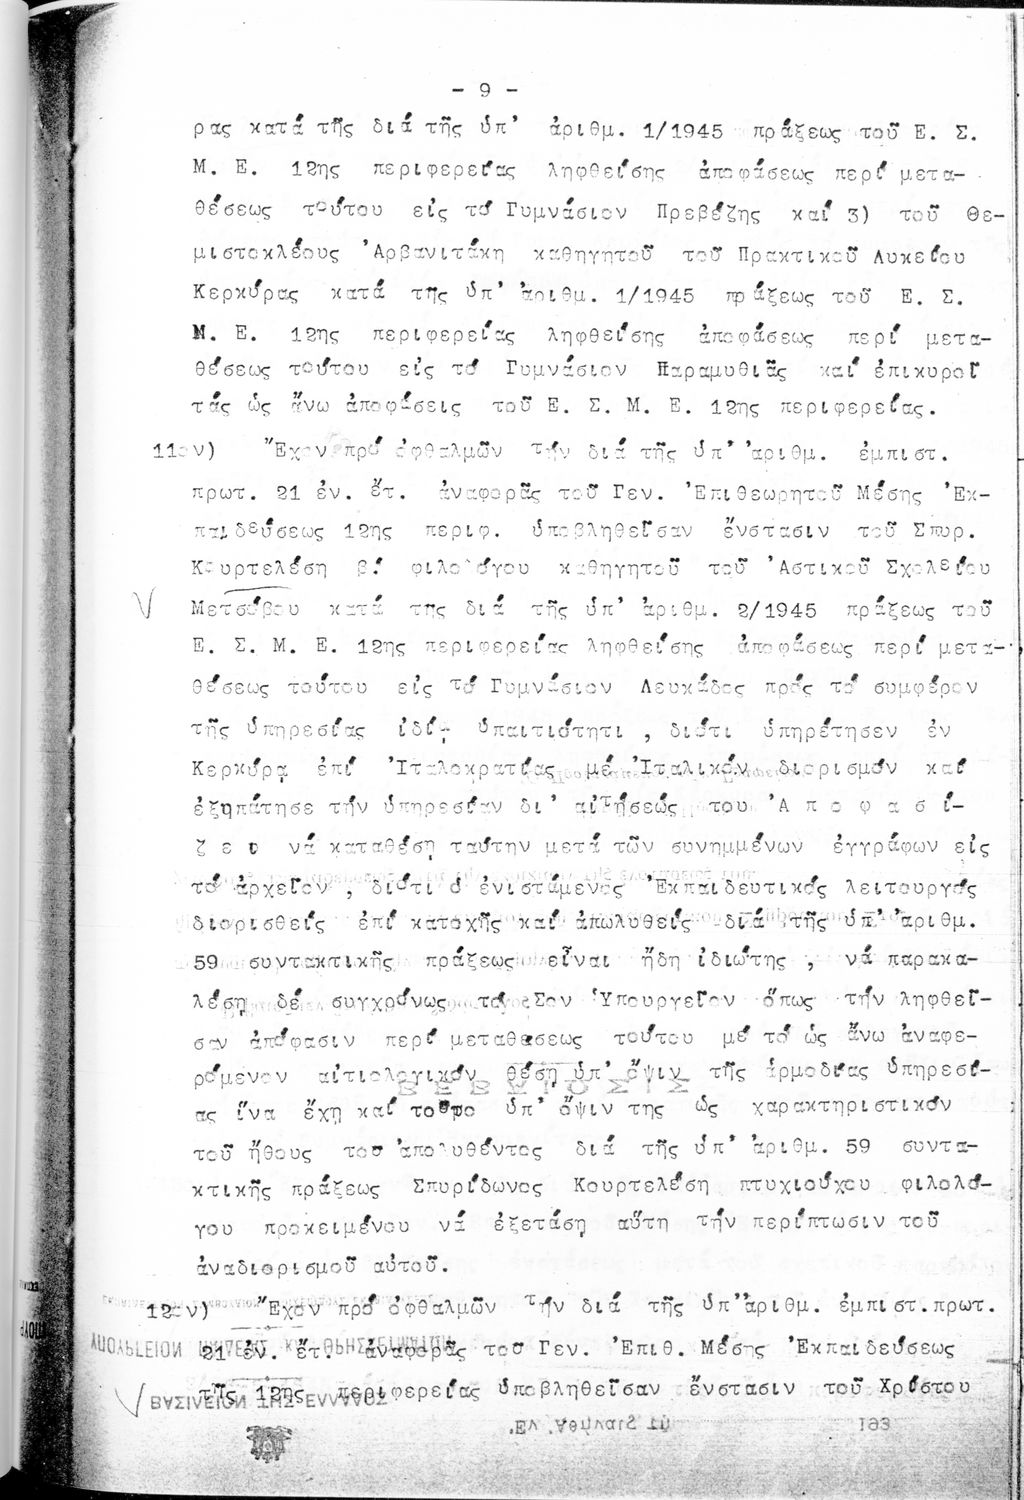 - 9 -
ρας κατά τῆς διά τῆς ὑπ' ἀριθμ. 1/1945 πράξεως τοῦ Ε. Σ.
Μ. Ε. 12ης περιφερείας ληφθείσης ἀποφάσεως περί μετα-
θέσεως τούτου εἰς τό Γυμνάσιον Πρεβέζης καί 3) τοῦ Θε-
μιστοκλέους 'Αρβανιτάκη καθηγητοῦ τοῦ Πρακτικοῦ Λυκείου
Κερκύρας κατά της ὑπ' ἀριθμ. 1/1945 πράξεως τοῦ Ε. Σ.
Μ. Ε. 12ης περιφερείας ληφθείσης ἀποφάσεως περί μετα-
θέσεως τούτου εἰς τό Γυμνάσιον Παραμυθιᾶς καί ἐπικυροῖ
τάς ὡς ἄνω ἀποφάσεις τοῦ Ε. Σ. Μ. Ε. 12ης περιφερείας.
11ον) Ἔχον πρό ὀφθαλμῶν τήν διά τῆς ὑπ' ἀριθμ. ἐμπιστ.
πρωτ. 21 ἐν. ἔτ. ἀναφορᾶς τοῦ Γεν. 'Επιθεωρητοῦ Μέσης 'Εκ-
παιδεύσεως 12ης περιφ. ὑποβληθεῖσαν ἔνστασιν τοῦ Σπυρ.
Κουρτελέση β.' φιλολόγου καθηγητοῦ τοῦ 'Αστικοῦ Σχολείου
Μετσόβου κατά της διά τῆς ὑπ' ἀριθμ. 2/1945 πράξεως τοῦ
Ε. Σ. Μ. Ε. 12ης περιφερείας ληφθείσης ἀποφάσεως περί μετα-
θέσεως τούτου εἰς τό Γυμνάσιον Λευκάδος πρός τό συμφέρον
τῆς ὑπηρεσίας ἰδίᾳ ὑπαιτιότητι , διότι ὑπηρέτησεν ἐν
Κερκύρᾳ ἐπί 'Ιταλοκρατίας μέ 'Ιταλικόν διορισμόν καί
ἐξηπάτησε τήν ὑπηρεσίαν δι' αἰτήσεώς του 'Α π ο φ α σ ί-
ζ ε ι νά καταθέσῃ ταύτην μετά τῶν συνημμένων ἐγγράφων εἰς
τό ἀρχεῖον , διότι ὁ ἐνιστάμενος 'Εκπαιδευτικός λειτουργός
διορισθείς ἐπί κατοχῆς καί ἀπωλυθείς διά τῆς ὑπ' ἀριθμ.
59 συντακτικῆς πράξεως εἶναι ἤδη ἰδιώτης , νά παρακα-
λέσῃ δέ συγχρόνως τό Σον Ὑπουργεῖον ὅπως τήν ληφθεῖ-
σαν ἀπόφασιν περί μεταθεσεως τούτου μέ τό ὡς ἄνω ἀναφε-
ρόμενον αἰτιολογικόν θέσῃ ὑπ' ὄψιν τῆς ἁρμοδίας ὑπηρεσί-
ας ἵνα ἔχῃ καί τοῦτο ὑπ' ὄψιν της ὡς χαρακτηριστικόν
τοῦ ἤθους του ἀπολυθέντος διά τῆς ὑπ' ἀριθμ. 59 συντα-
κτικῆς πράξεως Σπυρίδωνος Κουρτελέση πτυχιούχου φιλολό-
γου προκειμένου νά ἐξετάσῃ αὕτη τήν περίπτωσιν τοῦ
ἀναδιορισμοῦ αὐτοῦ.
12ον) Ἔχον πρό ὀφθαλμῶν τήν διά τῆς ὑπ' ἀριθμ. ἐμπιστ. πρωτ.
21 ἐν. ἔτ. ἀναφορᾶς τοῦ Γεν. 'Επιθ. Μέσης 'Εκπαιδεύσεως
τῆς 12ης περιφερείας ὑποβληθεῖσαν ἔνστασιν τοῦ Χρίστου